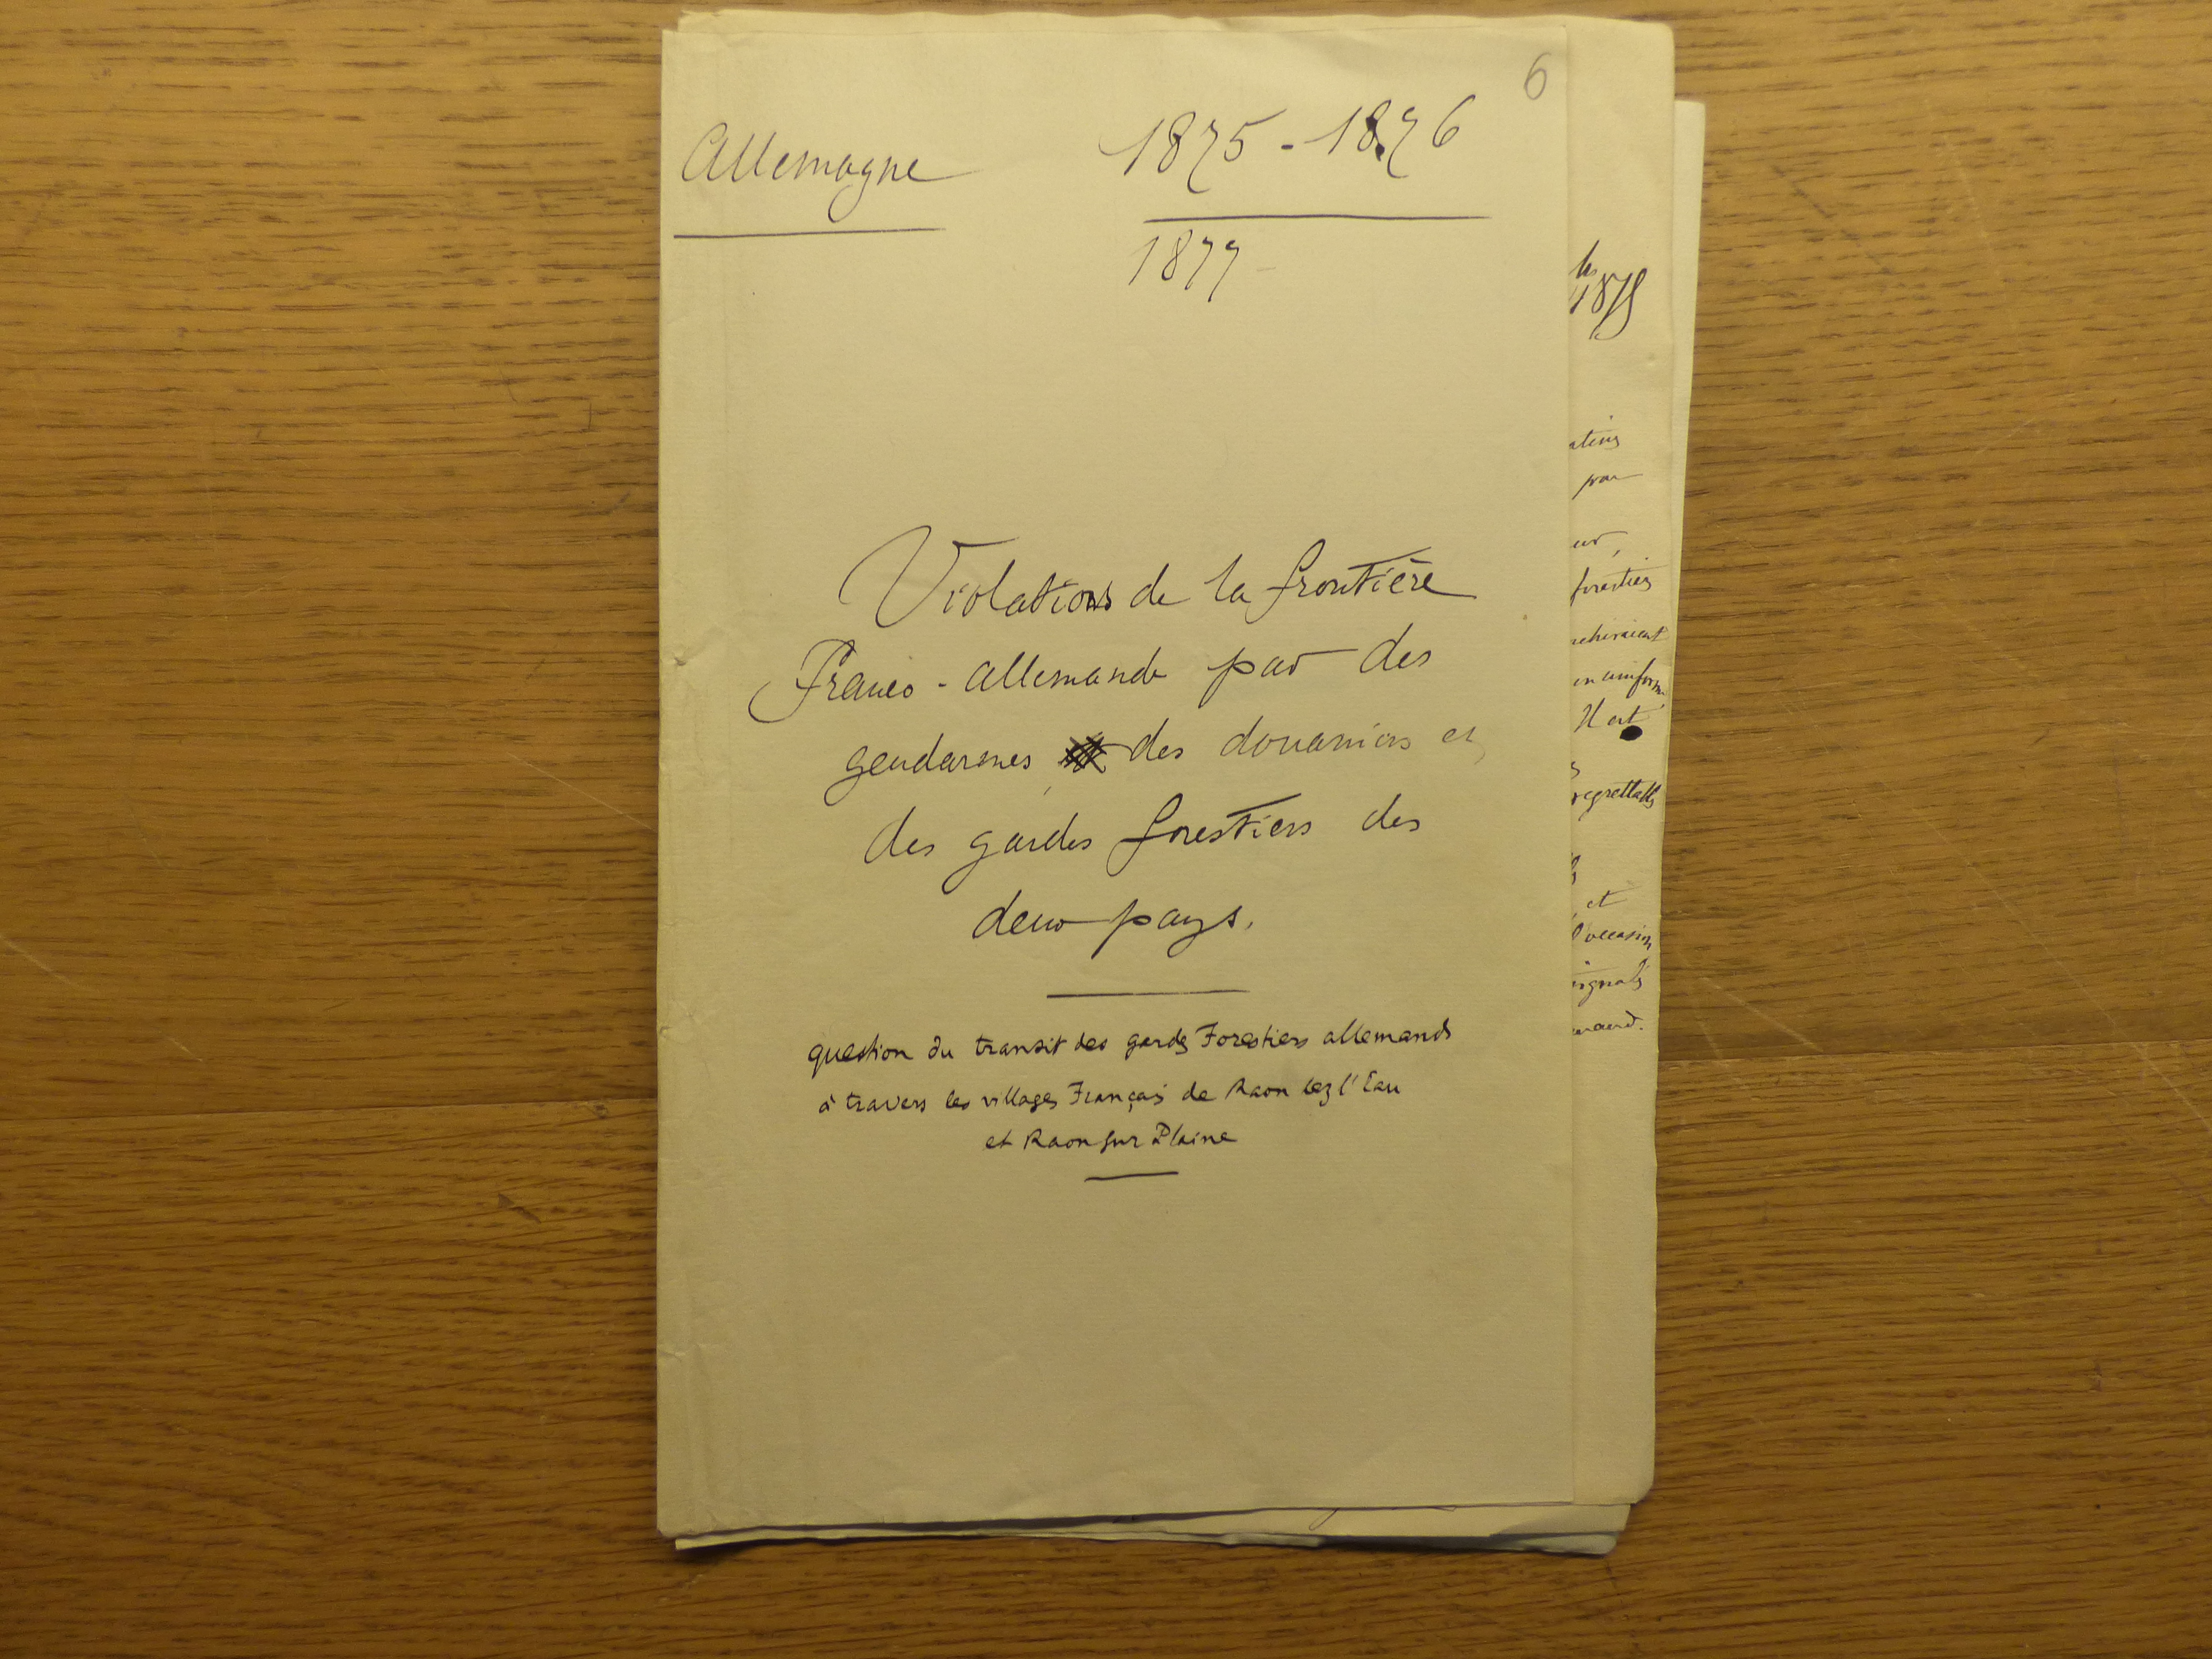 6
Allemagne
1875 - 1876
1877
Violations de la frontière
Franco-allemande par des
gendarmes, des douaniers et
des gardes forestiers des
deux pays.
question du transit des gardes Forestiers allemands
à travers les villages Français de Raon lez l'Eau
et Raon sur Plaine
1875
par
forestiers
en uniforme,
Il est
regrettable
et
l'occasion